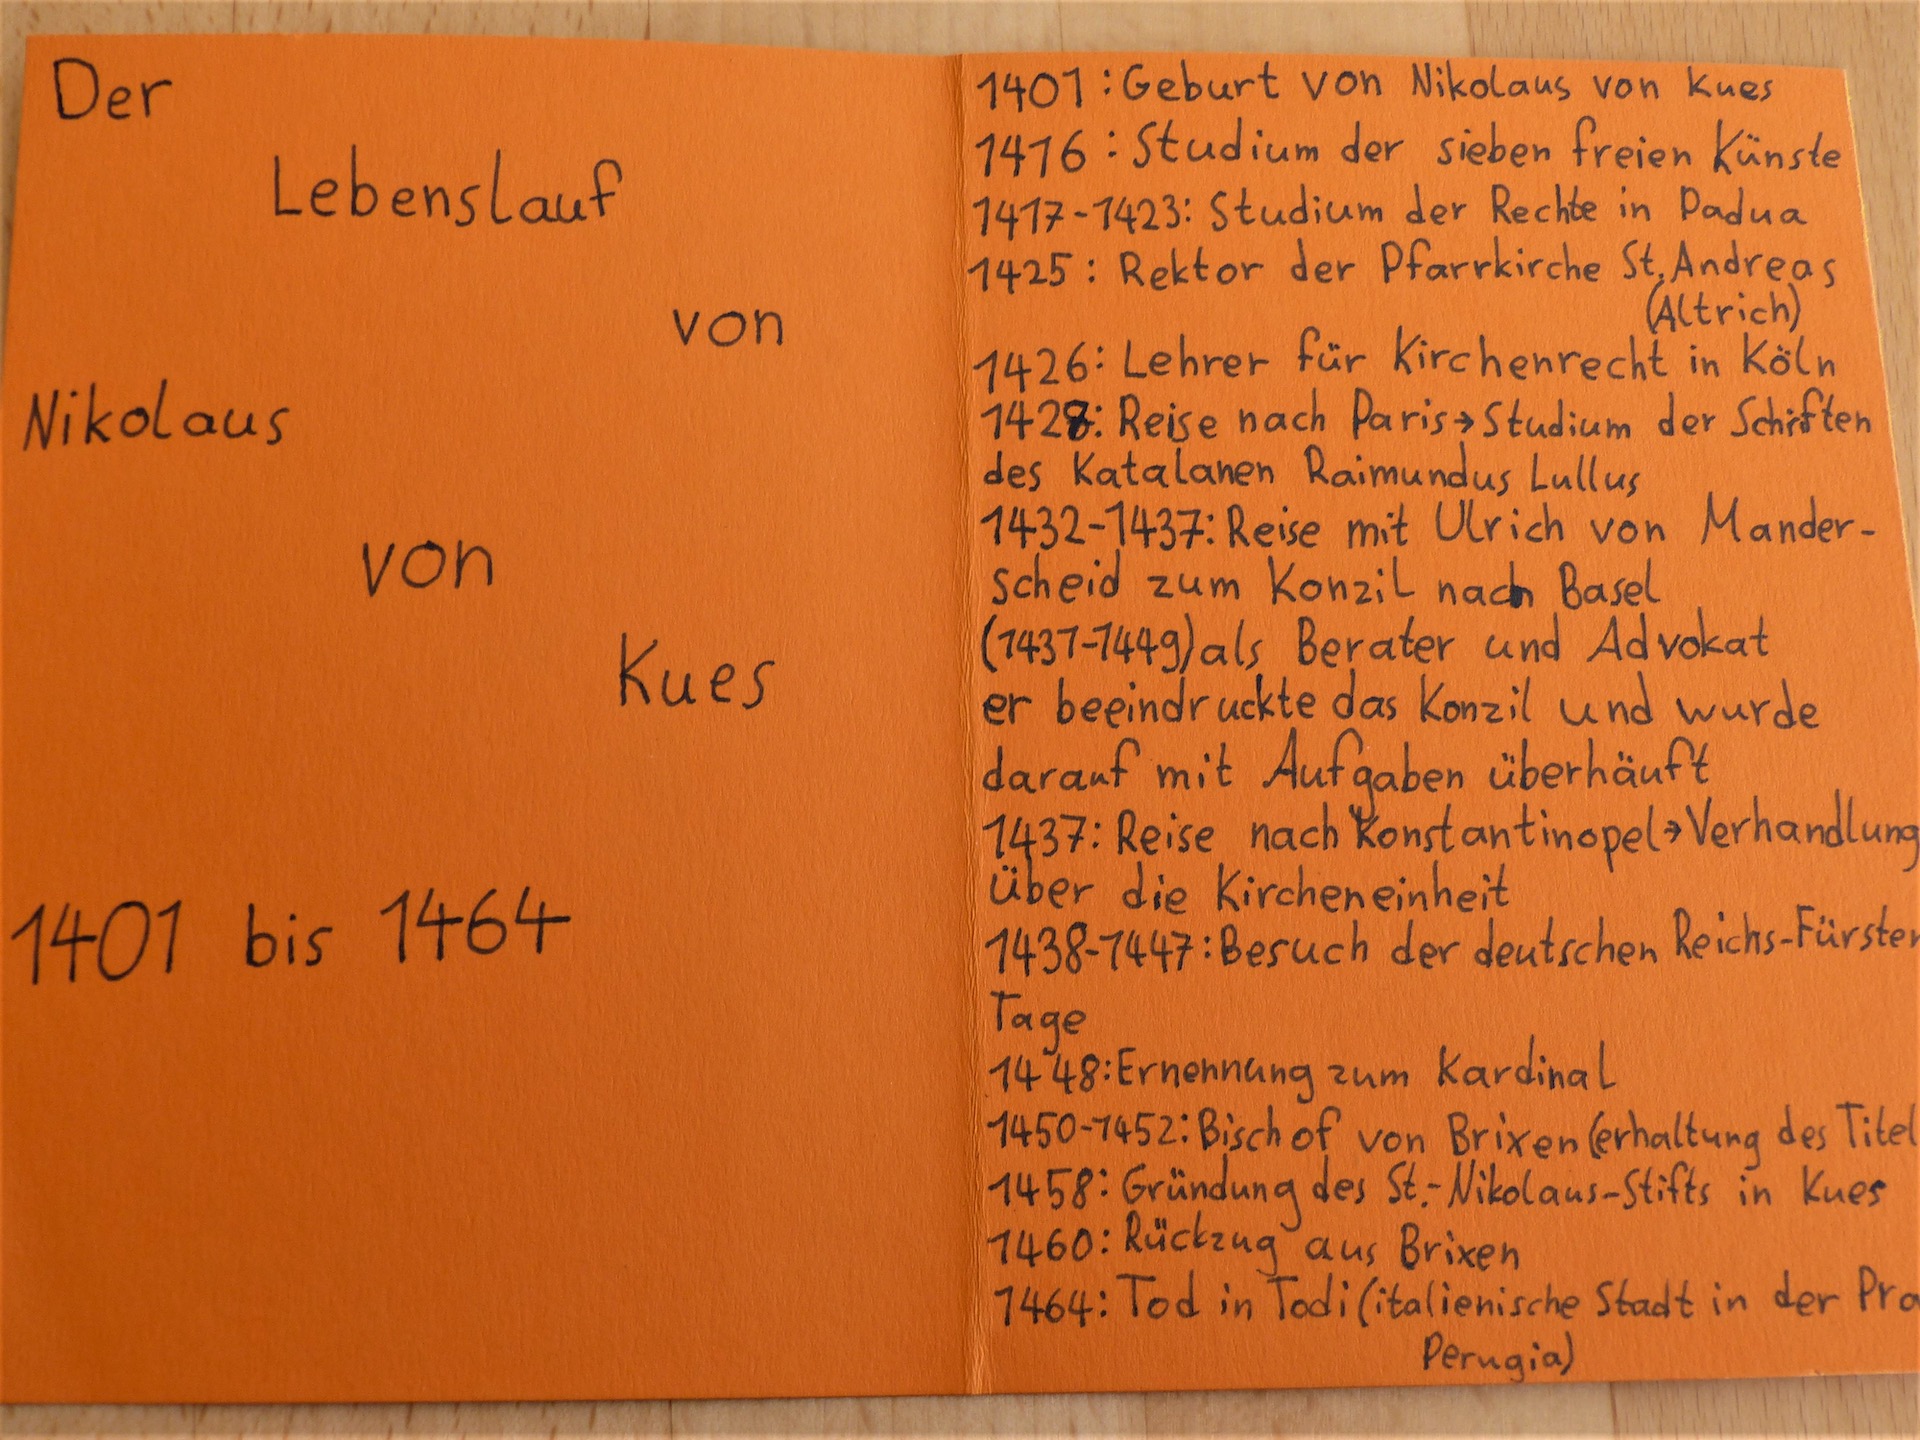 Der
Lebenslauf
von
Nikolaus
von
Kues
1401 bis 1464
1401: Geburt von Nikolaus von Kues
1416: Studium der sieben freien Künste
1417-1423: Studium der Rechte in Padua
1425: Rektor der Pfarrkirche St. Andreas
(Altrich)
1426: Lehrer für Kirchenrecht in Köln
1428: Reise nach Paris→Studium der Schriften
des Katalanen Raimundus Lullus
1432-1437: Reise mit Ulrich von Mander-
scheid zum Konzil nach Basel
(1431-1449) als Berater und Advokat
er beeindruckte das Konzil und wurde
darauf mit Aufgaben überhäuft
1437: Reise nach Konstantinopel→Verhandlung
über die Kircheneinheit
1438-1447: Besuch der deutschen Reichs-Fürsten
Tage
1448: Ernennung zum Kardinal
1450-1452: Bischof von Brixen (erhaltung des Titel
1458: Gründung des St.-Nikolaus-Stifts in Kues
1460: Rückzug aus Brixen
1464: Tod in Todi (italienische Stadt in der Pro
Perugia)